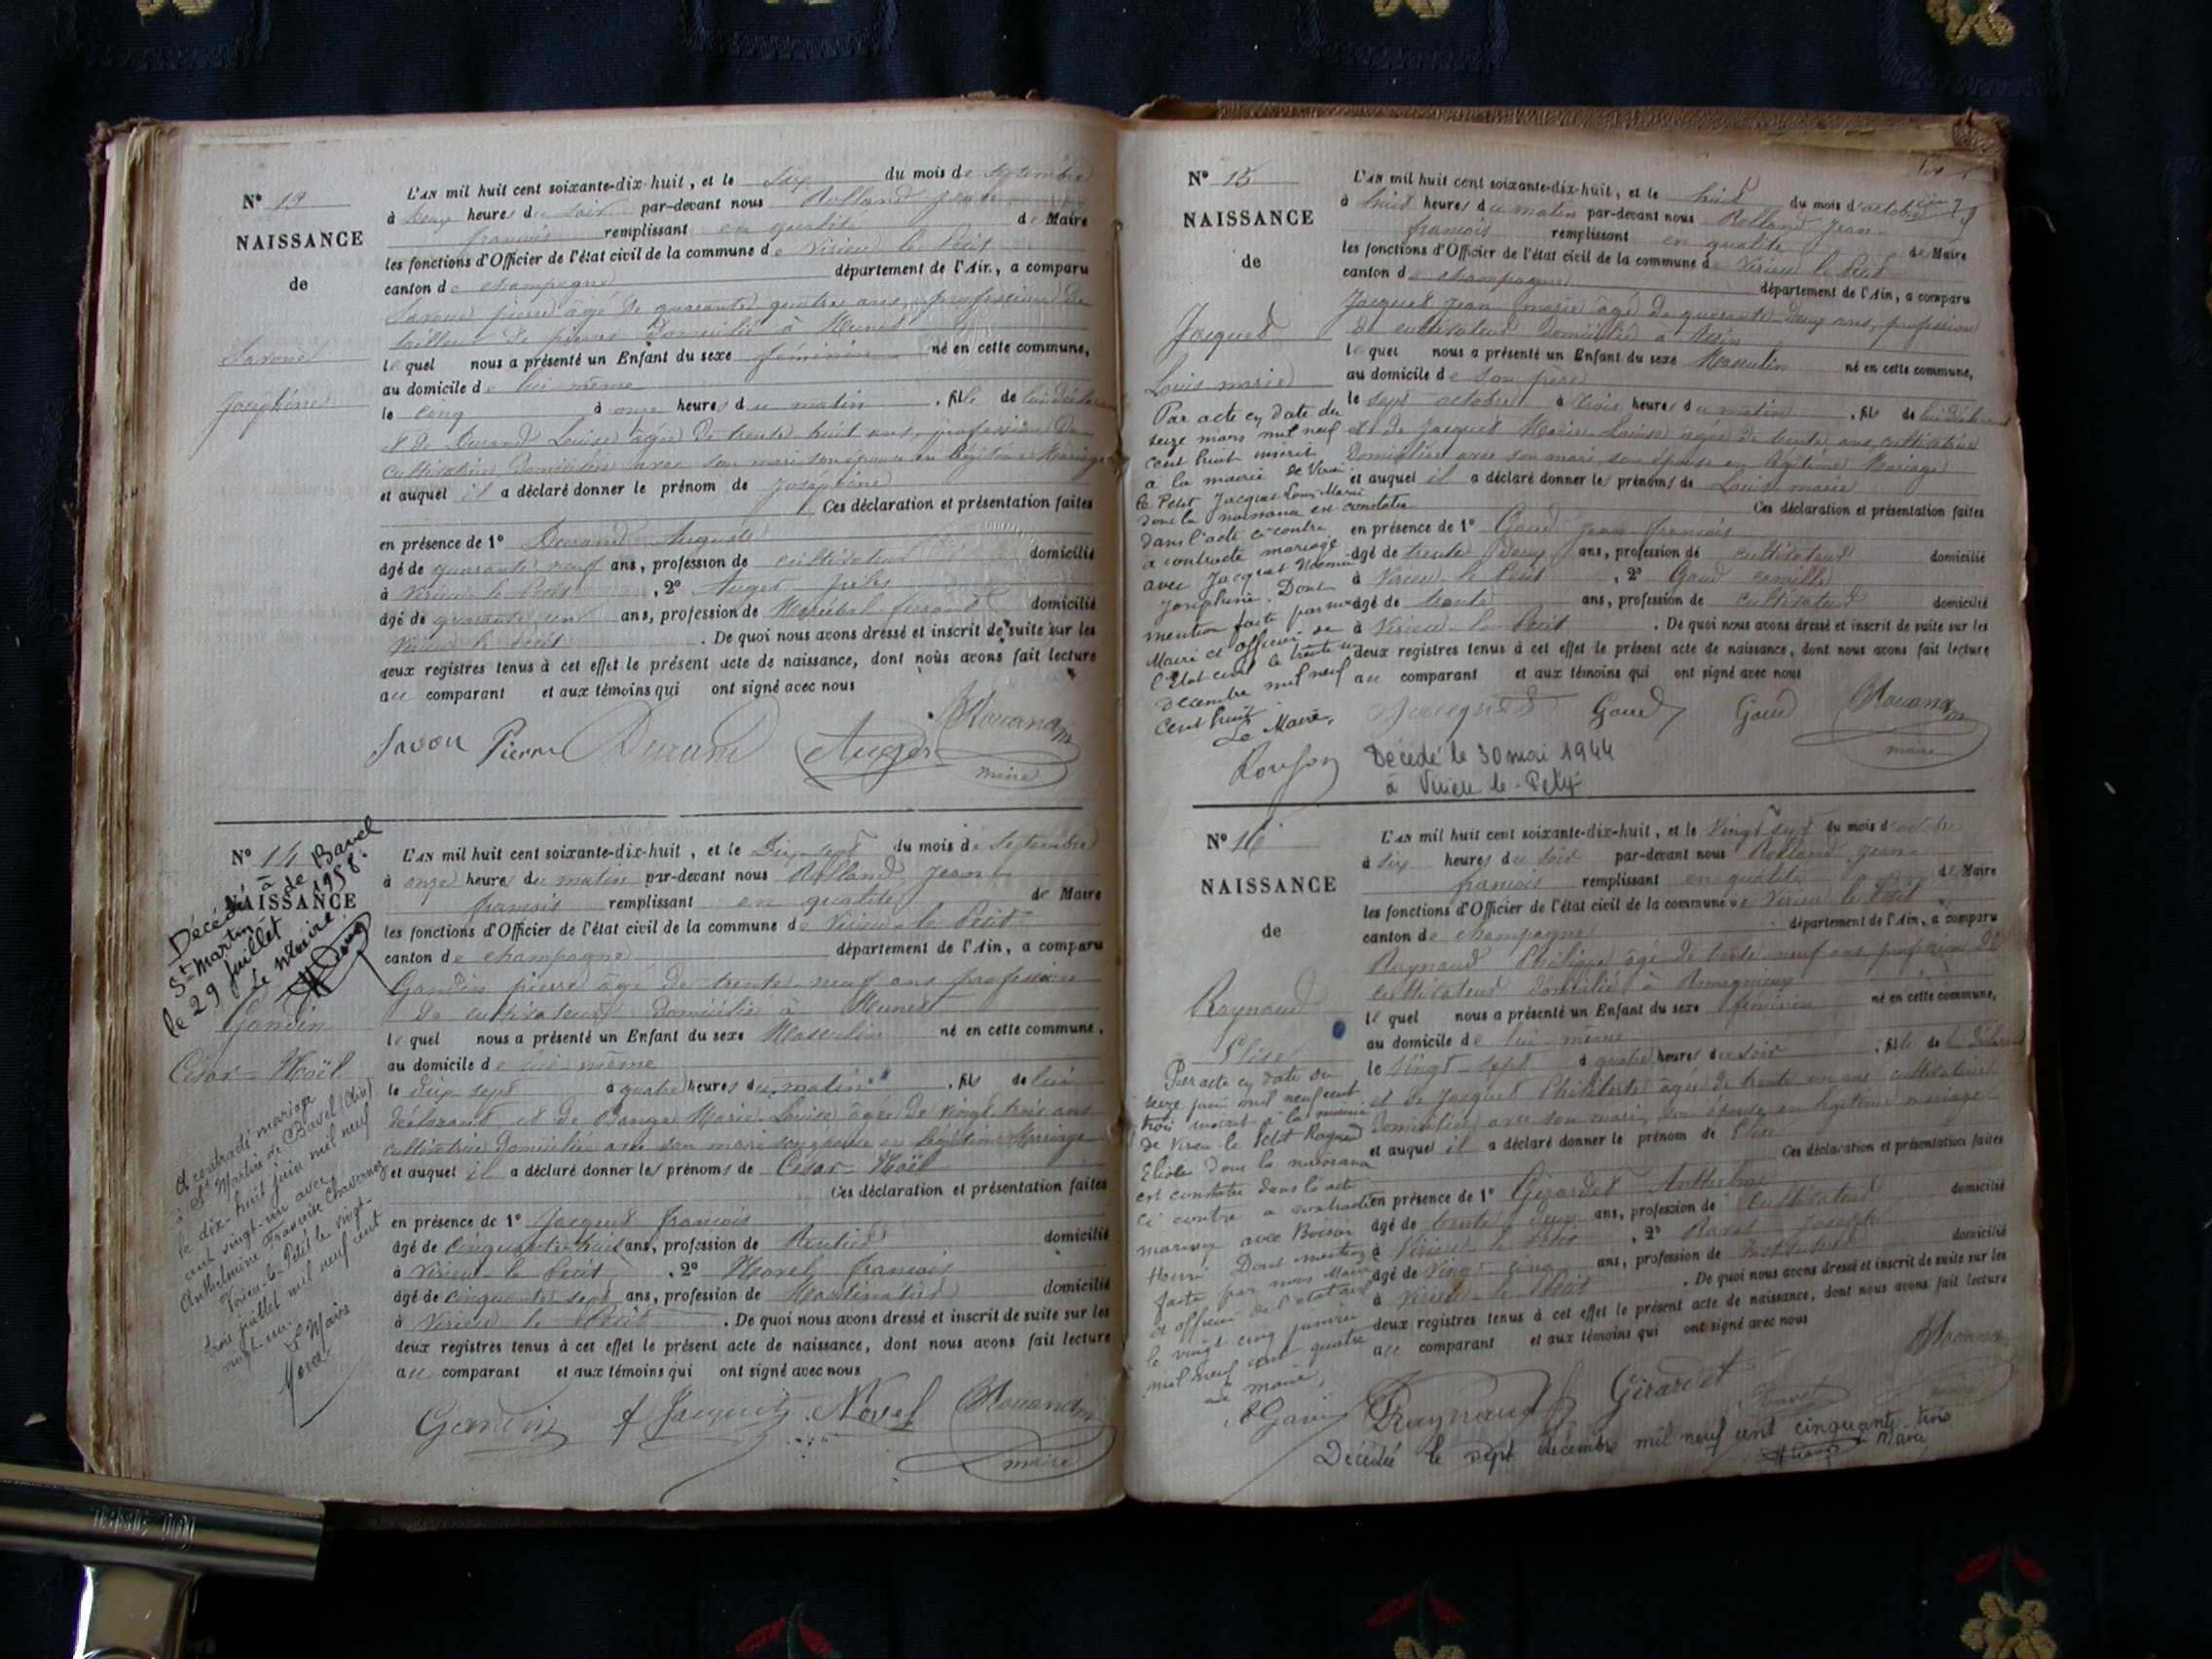 N° 13
NAISSANCE
de
Savoué
Joséphine
L'AN mil huit cent soixante-dix-huit, et le six du mois de Septembre
à Deux heures du soir par-devant nous Rolland Jean
francois remplissant en qualité de Maire
les fonctions d'Officier de l'état civil de la commune de Virieu le Petit
canton de champagne département de l'Ain, a comparu
pierre âgé de quarante quatre ans, profession de
tailleur de pierres domicilié à Munet
lequel nous a présenté un Enfant du sexe féminin né en cette commune,
au domicile de lui même
le cinq à onze heures du matin, fille de lui déclarant
et de Durand Louise âgée de trente huit ans, profession de
cultivatrice domiciliée avec son mari son épouse en légitime Mariage
et auquel il a déclaré donner le prénom de Joséphine
Ces déclaration et présentation faites
en présence de 1° Durand Auguste
âgé de quarante neuf ans, profession de cultivateur domicilié
à Virieu le Petit, 2° Auger
âgé de quarante ans, profession de Maréchal ferrand domicilié
Virieu le Petit. De quoi nous avons dressé et inscrit de suite sur les
deux registres tenus à cet effet le présent acte de naissance, dont nous avons fait lecture
au comparant et aux témoins qui ont signé avec nous
Savou Pierre Durand Auger
maire
N° 14
NAISSANCE
Décédé à
St Martin de Bavel
le 29 juillet 1958.
Le Maire
Gandin
César-Noël
A contracté mariage
à St Martin de Bavel (Ain)
le dix-huit juin mil neuf
cent vingt-un avec
Anthelmine Françoise Chavornay
Virieu-le-Petit le vingt-
trois juillet mil neuf cent
vingt-un.
Le Maire
L'AN mil huit cent soixante-dix-huit, et le Dix sept du mois de Septembre
à onze heures du matin par-devant nous Rolland Jean
francois remplissant en qualité de Maire
les fonctions d'Officier de l'état civil de la commune de Virieu le Petit
canton de champagne département de l'Ain, a comparu
Gandin pierre âgé de trente neuf ans profession
de cultivateur domicilié à Munet
lequel nous a présenté un Enfant du sexe Masculin né en cette commune,
au domicile de lui même
le dix sept à quatre heures du matin, fils de lui
déclarant et de Marie Louise âgée de vingt trois ans
cultivatrice domiciliée avec son mari son épouse en légitime Mariage
et auquel il a déclaré donner les prénoms de César-Noël
Ces déclaration et présentation faites
en présence de 1° Jacquet francois
âgé de cinquante trois ans, profession de Rentier domicilié
à Virieu le Petit, 2° Novel francois
âgé de cinquante sept ans, profession de domicilié
à Virieu le Petit. De quoi nous avons dressé et inscrit de suite sur les
deux registres tenus à cet effet le présent acte de naissance, dont nous avons fait lecture
au comparant et aux témoins qui ont signé avec nous
Gandin f Jacquet Novel
maire
N° 15
NAISSANCE
de
Jacquet
Louis marie
Par acte en date du
seize mars mil neuf
cent huit inscrit
à la mairie de Virieu
le Petit Jacquet Louis Marie
dont la naissance est constatée
dans l'acte ci-contre
a contracté mariage
avec Jacquet
Joséphine. Dont
mention faite par nous
Maire et officier de
l'Etat civil le trente un
décembre mil neuf
cent huit
Le Maire,
L'AN mil huit cent soixante-dix-huit, et le huit du mois d'octobre
à huit heures du matin par-devant nous Rolland Jean
francois remplissant en qualité de Maire
les fonctions d'Officier de l'état civil de la commune de Virieu le Petit
canton de champagne département de l'Ain, a comparu
Jacquet Jean marie âgé de quarante deux ans, profession
de cultivateur domicilié à
lequel nous a présenté un Enfant du sexe Masculin né en cette commune,
au domicile de son père
le sept octobre à trois heures du matin, fils de lui déclarant
et de Jacquet Marie Louise âgée de trente ans, cultivatrice
domiciliée avec son mari, son épouse en légitime Mariage
et auquel il a déclaré donner les prénoms de Louis marie
Ces déclaration et présentation faites
en présence de 1° Goud Jean francois
âgé de trente Deux ans, profession de cultivateur domicilié
à Virieu le Petit, 2° Goud camille
âgé de trente ans, profession de cultivateur domicilié
à Virieu le Petit. De quoi nous avons dressé et inscrit de suite sur les
deux registres tenus à cet effet le présent acte de naissance, dont nous avons fait lecture
au comparant et aux témoins qui ont signé avec nous
Jacquet Goud Goud
maire
Décédé le 30 mai 1944
à Virieu-le-Petit
N° 16
NAISSANCE
de
Raynaud
Elise
Par acte en date du
seize juin mil neuf cent
trois inscrit à la mairie
de Virieu le Petit Raynaud
Elise dont la naissance
est constatée dans l'acte
ci contre a contracté
mariage avec
Henri Dont mention
faite par nous Maire
et officier de l'état civil
le vingt cinq janvier
mil neuf cent quatre
Le maire,
L'AN mil huit cent soixante-dix-huit, et le Vingt sept du mois d'octobre
à six heures du soir par-devant nous Rolland Jean
francois remplissant en qualité de Maire
les fonctions d'Officier de l'état civil de la commune de Virieu le Petit
canton de champagne département de l'Ain, a comparu
Raynaud Philippe âgé de trente neuf ans, profession de
cultivateur domicilié à
lequel nous a présenté un Enfant du sexe féminin né en cette commune,
au domicile de lui-même
le Vingt-sept à quatre heures du soir, fille de lui déclarant
et de Jacquet Philiberte âgée de trente un ans cultivatrice
domiciliée avec son mari, son épouse en légitime mariage
et auquel il a déclaré donner le prénom de Elise
Ces déclaration et présentation faites
en présence de 1° Girardet Anthelme
âgé de trente deux ans, profession de Cultivateur domicilié
à Virieu le Petit, 2° Ravet Joseph
âgé de Vingt cinq ans, profession de Instituteur domicilié
à Virieu le Petit. De quoi nous avons dressé et inscrit de suite sur les
deux registres tenus à cet effet le présent acte de naissance, dont nous avons fait lecture
au comparant et aux témoins qui ont signé avec nous
Raynaud Girardet Ravet
Décédée le sept décembre mil neuf cent cinquante trois
Maire